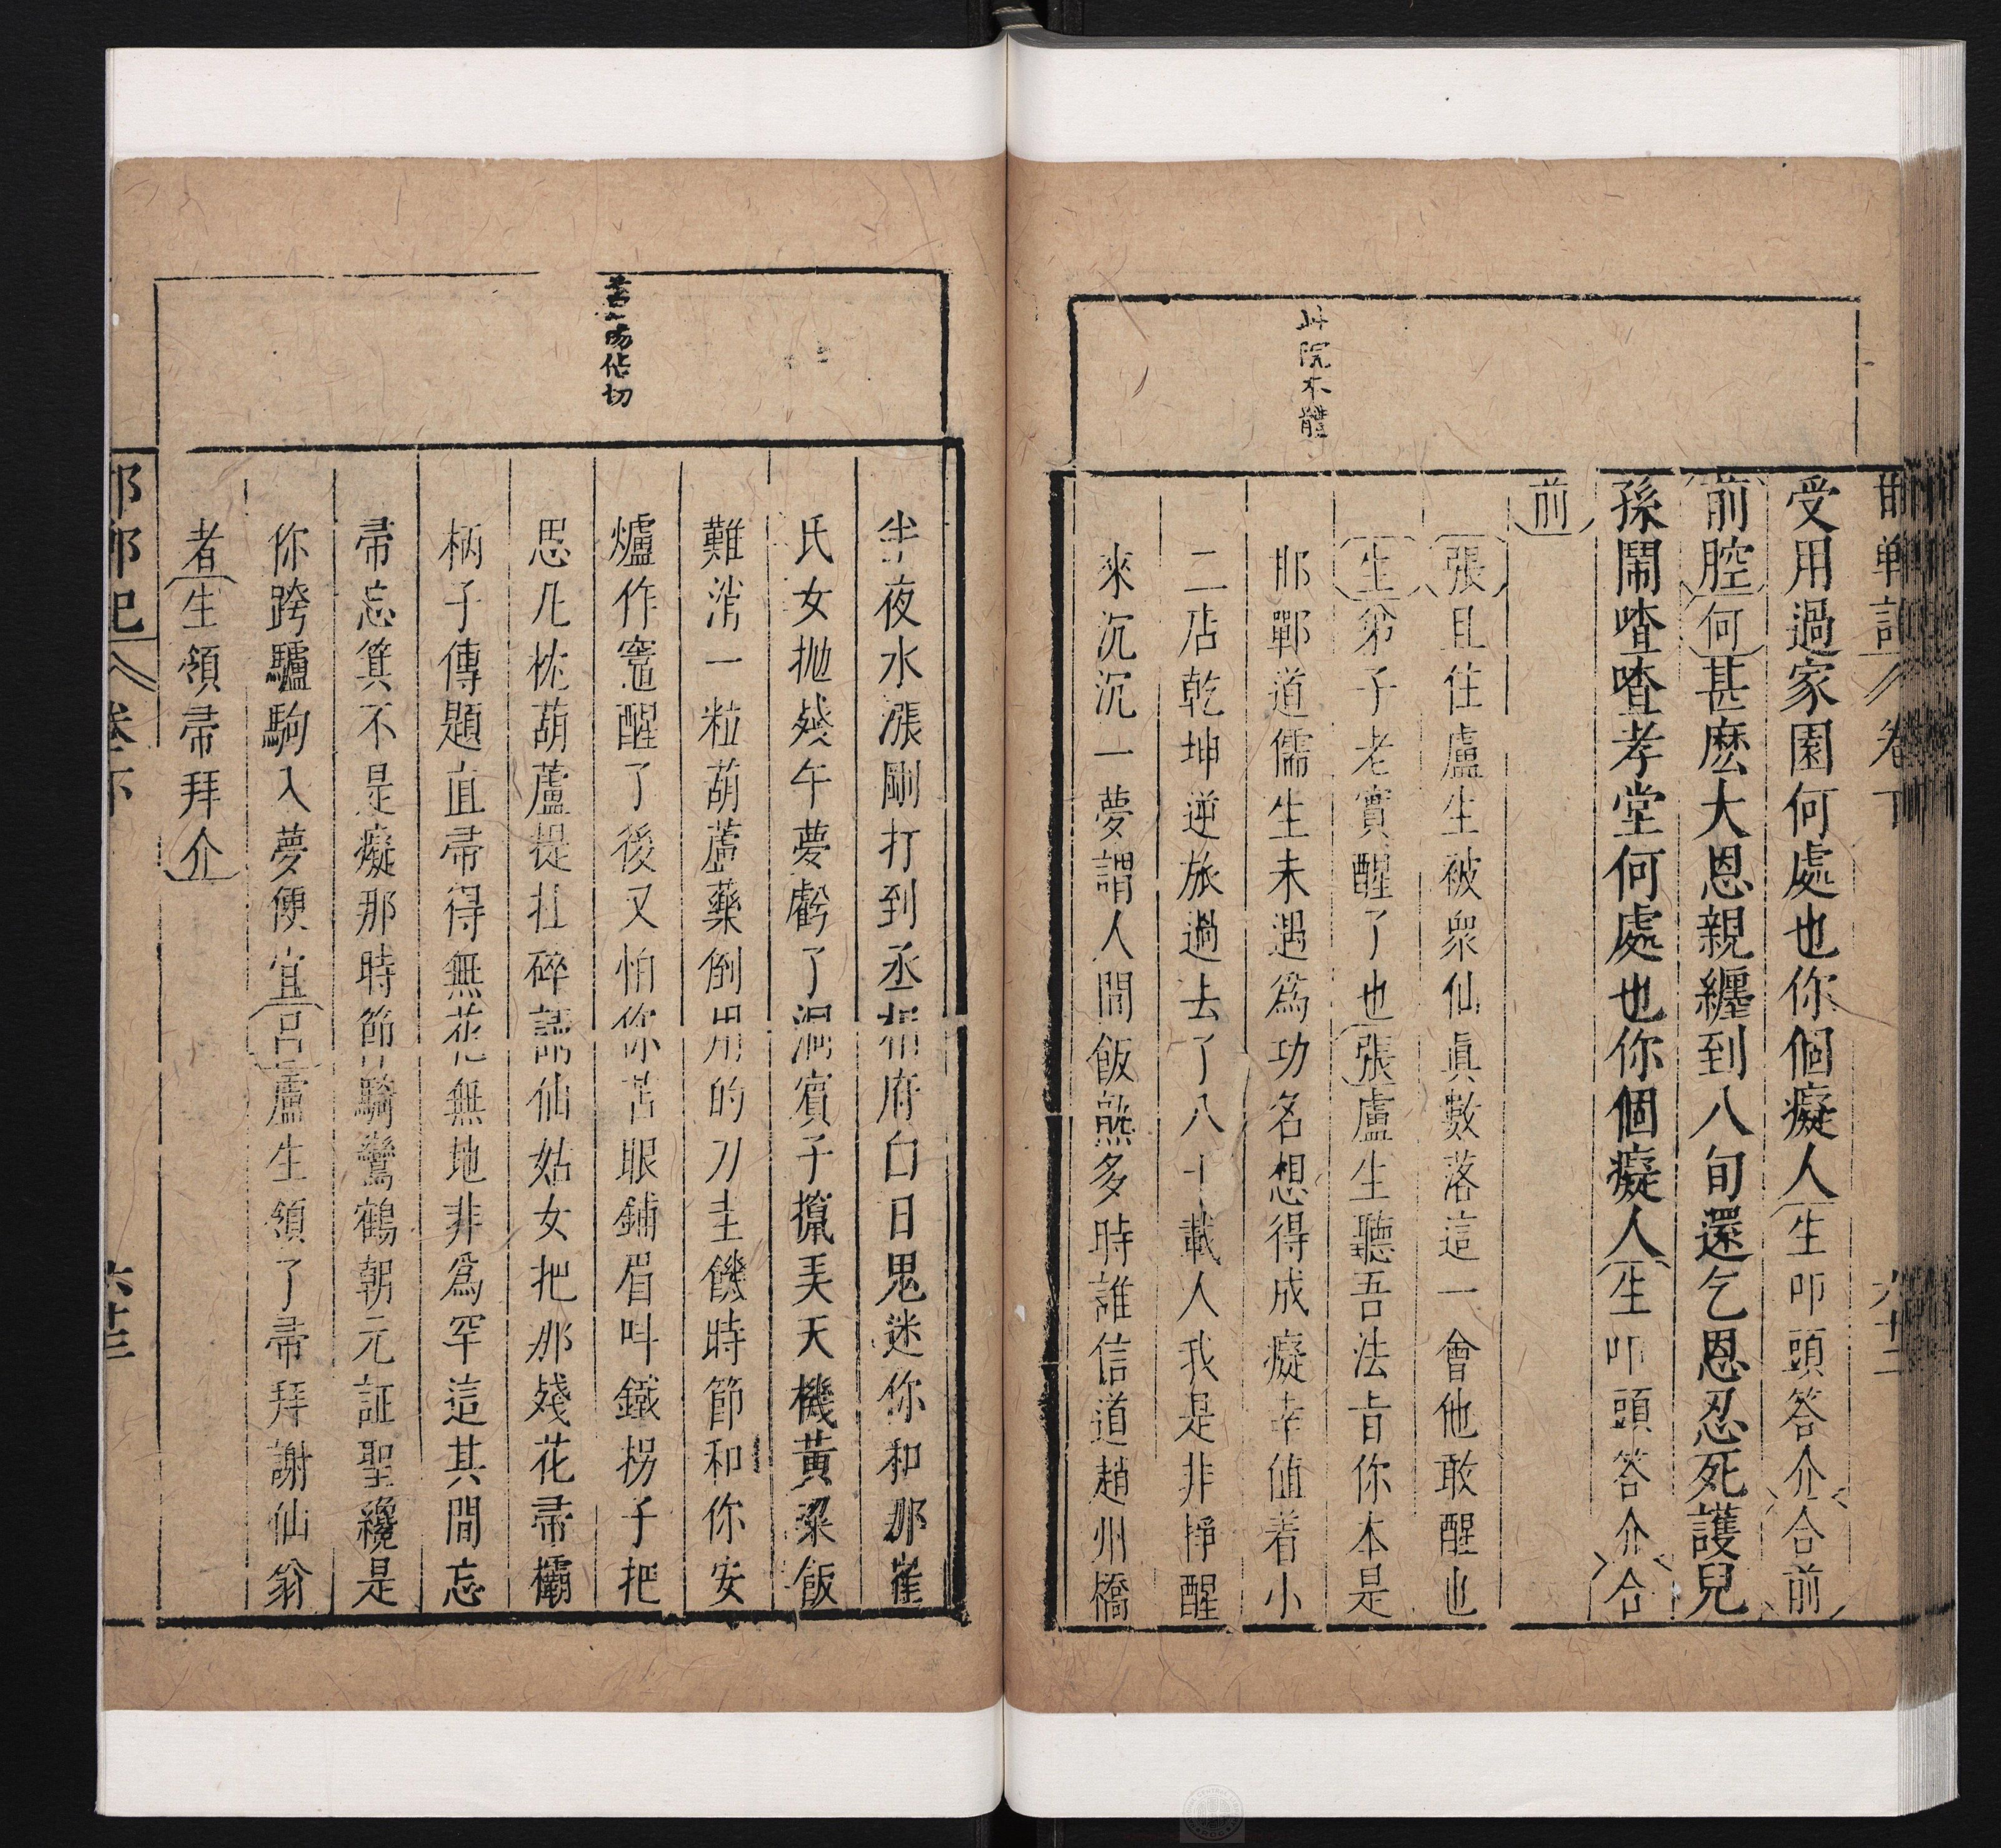 邯鄲記 卷下 六十二
受用過家園何處也你個癡人生叩頭答介合前
前腔何甚麽大恩親纏到八旬還乞恩忍死護兒
孫鬧喳喳孝堂何處也你個癡人生叩頭答介合
前
張且住盧生被眾仙真數落這一會他敢醒也
生弟子老實醒了也張盧生聽吾法旨你本是
邯鄲道儒生未遇爲功名想得成癡幸値着小
二店乾坤逆旅過去了八十載人我是非掙醒
來沉沉一夢謂人間飯熟多時誰信道趙州橋
院本體
半夜水漲剛打到丞相府白日鬼迷你和那崔
氏女抛殘午夢虧了洞賓子攛弄天機黃粱飯
難消一粒葫蘆藥倒用的刀圭饑時節和你安
爐作竈醒了後又怕你苦眼鋪眉叫鐵拐子把
思凡枕葫蘆提拄碎請仙姑女把那殘花帚欛
柄子傳題直帚得無花無地非爲罕這其間忘
帚忘箕不是癡那時節騎鸞鶴朝元証聖纔是
你跨驢駒入夢便宜呂盧生領了帚拜謝仙翁
者生領帚拜介
切
邯鄲記 卷下 六十三